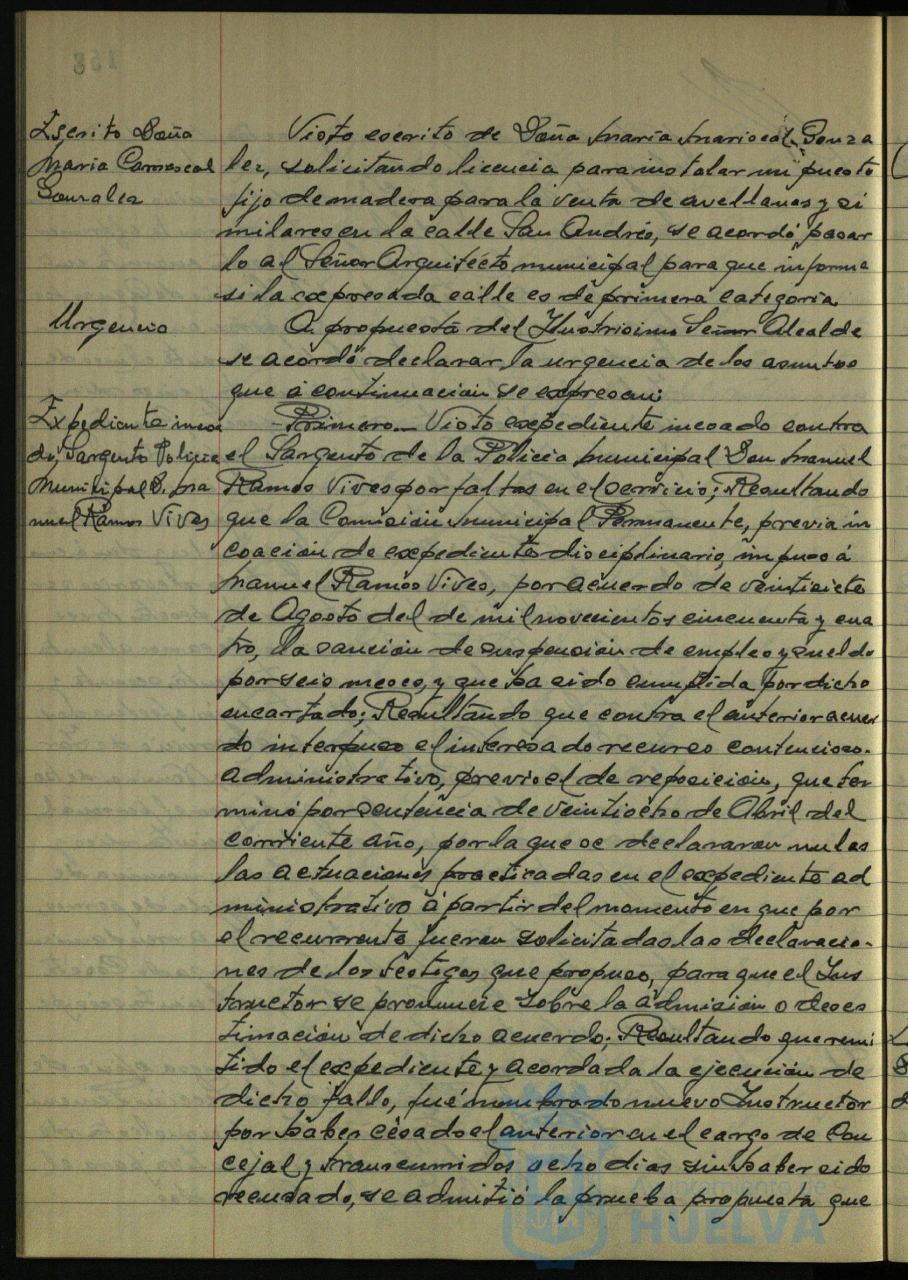 158
Escrito Doña
María Carrascal
Gonzalez
Visto escrito de Doña María Mariscal Gonza
lez, solicitando licencia para instalar un puesto
fijo de madera para la venta de avellanas y si
milares en la calle San Andrés, se acordó pasar
lo al Señor Arquitecto municipal para que informe
si la expresada calle es de primera categoria
Urgencia
A propuesta del Ilustrisimo Señor Alcalde
se acordó declarar la urgencia de los asuntos
que á continuación se expresan:
Expediente incoa
do Sargento Policia
Municipal D. Ma
nuel Ramos Vives
-Primero.- Visto expediente incoado contra
el Sargento de la Policia Municipal Don Manuel
Ramos Vives por faltas en el servicio; Resultando
que la Comisión Municipal Permanente, previa in
coacion de expediente disciplinario, impuso á
Manuel Ramos Vives, por acuerdo de veintisiete
de Agosto del de mil novecientos cincuenta y cua
tro, la sanción de suspensión de empleo y sueldo
por seis meses, y que ha sido cumplida por dicho
encartado; Resultando que contra el anterior acuer
do interpuso el interesado recurso contencioso-
administrativo, previo el de reposicion, que ter
minó por sentencia de veintiocho de Abril del
corriente año, por la que se declararon nulas
las actuaciones practicadas en el expediente ad
ministrativo á partir del momento en que por
el recurrente fueron solicitadas las declaracio-
nes de los testigos que propuso, para que el Ins
tructor se pronuncie sobre la admision o deses
timación de dicho acuerdo; Resultando que remi
tido el expediente y acordada la ejecución de
dicho fallo, fué nombrado nuevo Instructor
por haber cesado el anterior en el cargo de Con
cejal y transcurridos ocho dias sin haber sido
recusado, se admitió la prueba propuesta que
Ayuntamiento de
HUELVA